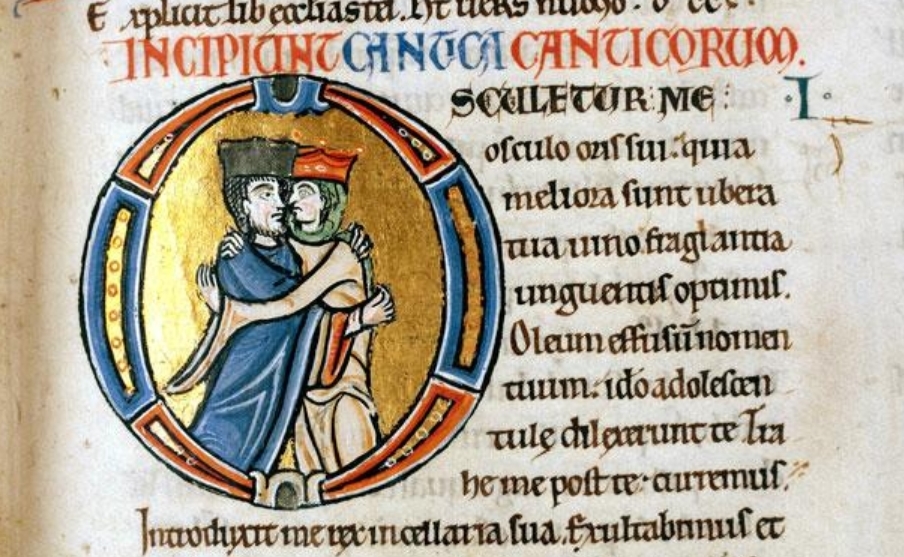 Explicit lib
INCIPIUNT CANTICA CANTICORUM.
OSCULETUR ME : ·I·
osculo oris sui. quia
meliora sunt ubera
tua uino fraglantia
unguentis optimis.
Oleum effusū nomen
tuum. ido adolescen
tulę dilexerunt te Tra
he me post te. curremus.
Introduxit me rex in cellaria sua. Exultabimus et